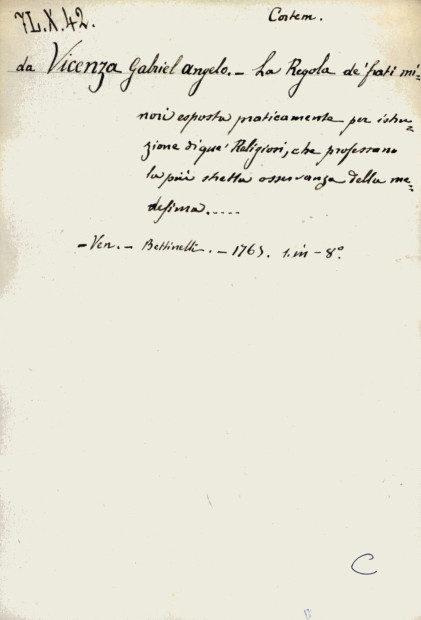 7L.X.42.
Contem.
da Vicenza Gabriel angelo. - La Regola de' frati mi=
nori esposta praticamente per istru=
zione di que' Religiosi, che professano
la più stretta osservanza della me=
desima.....
- Ven. - Bettinelli. - 1765. 1. in - 8°.
C